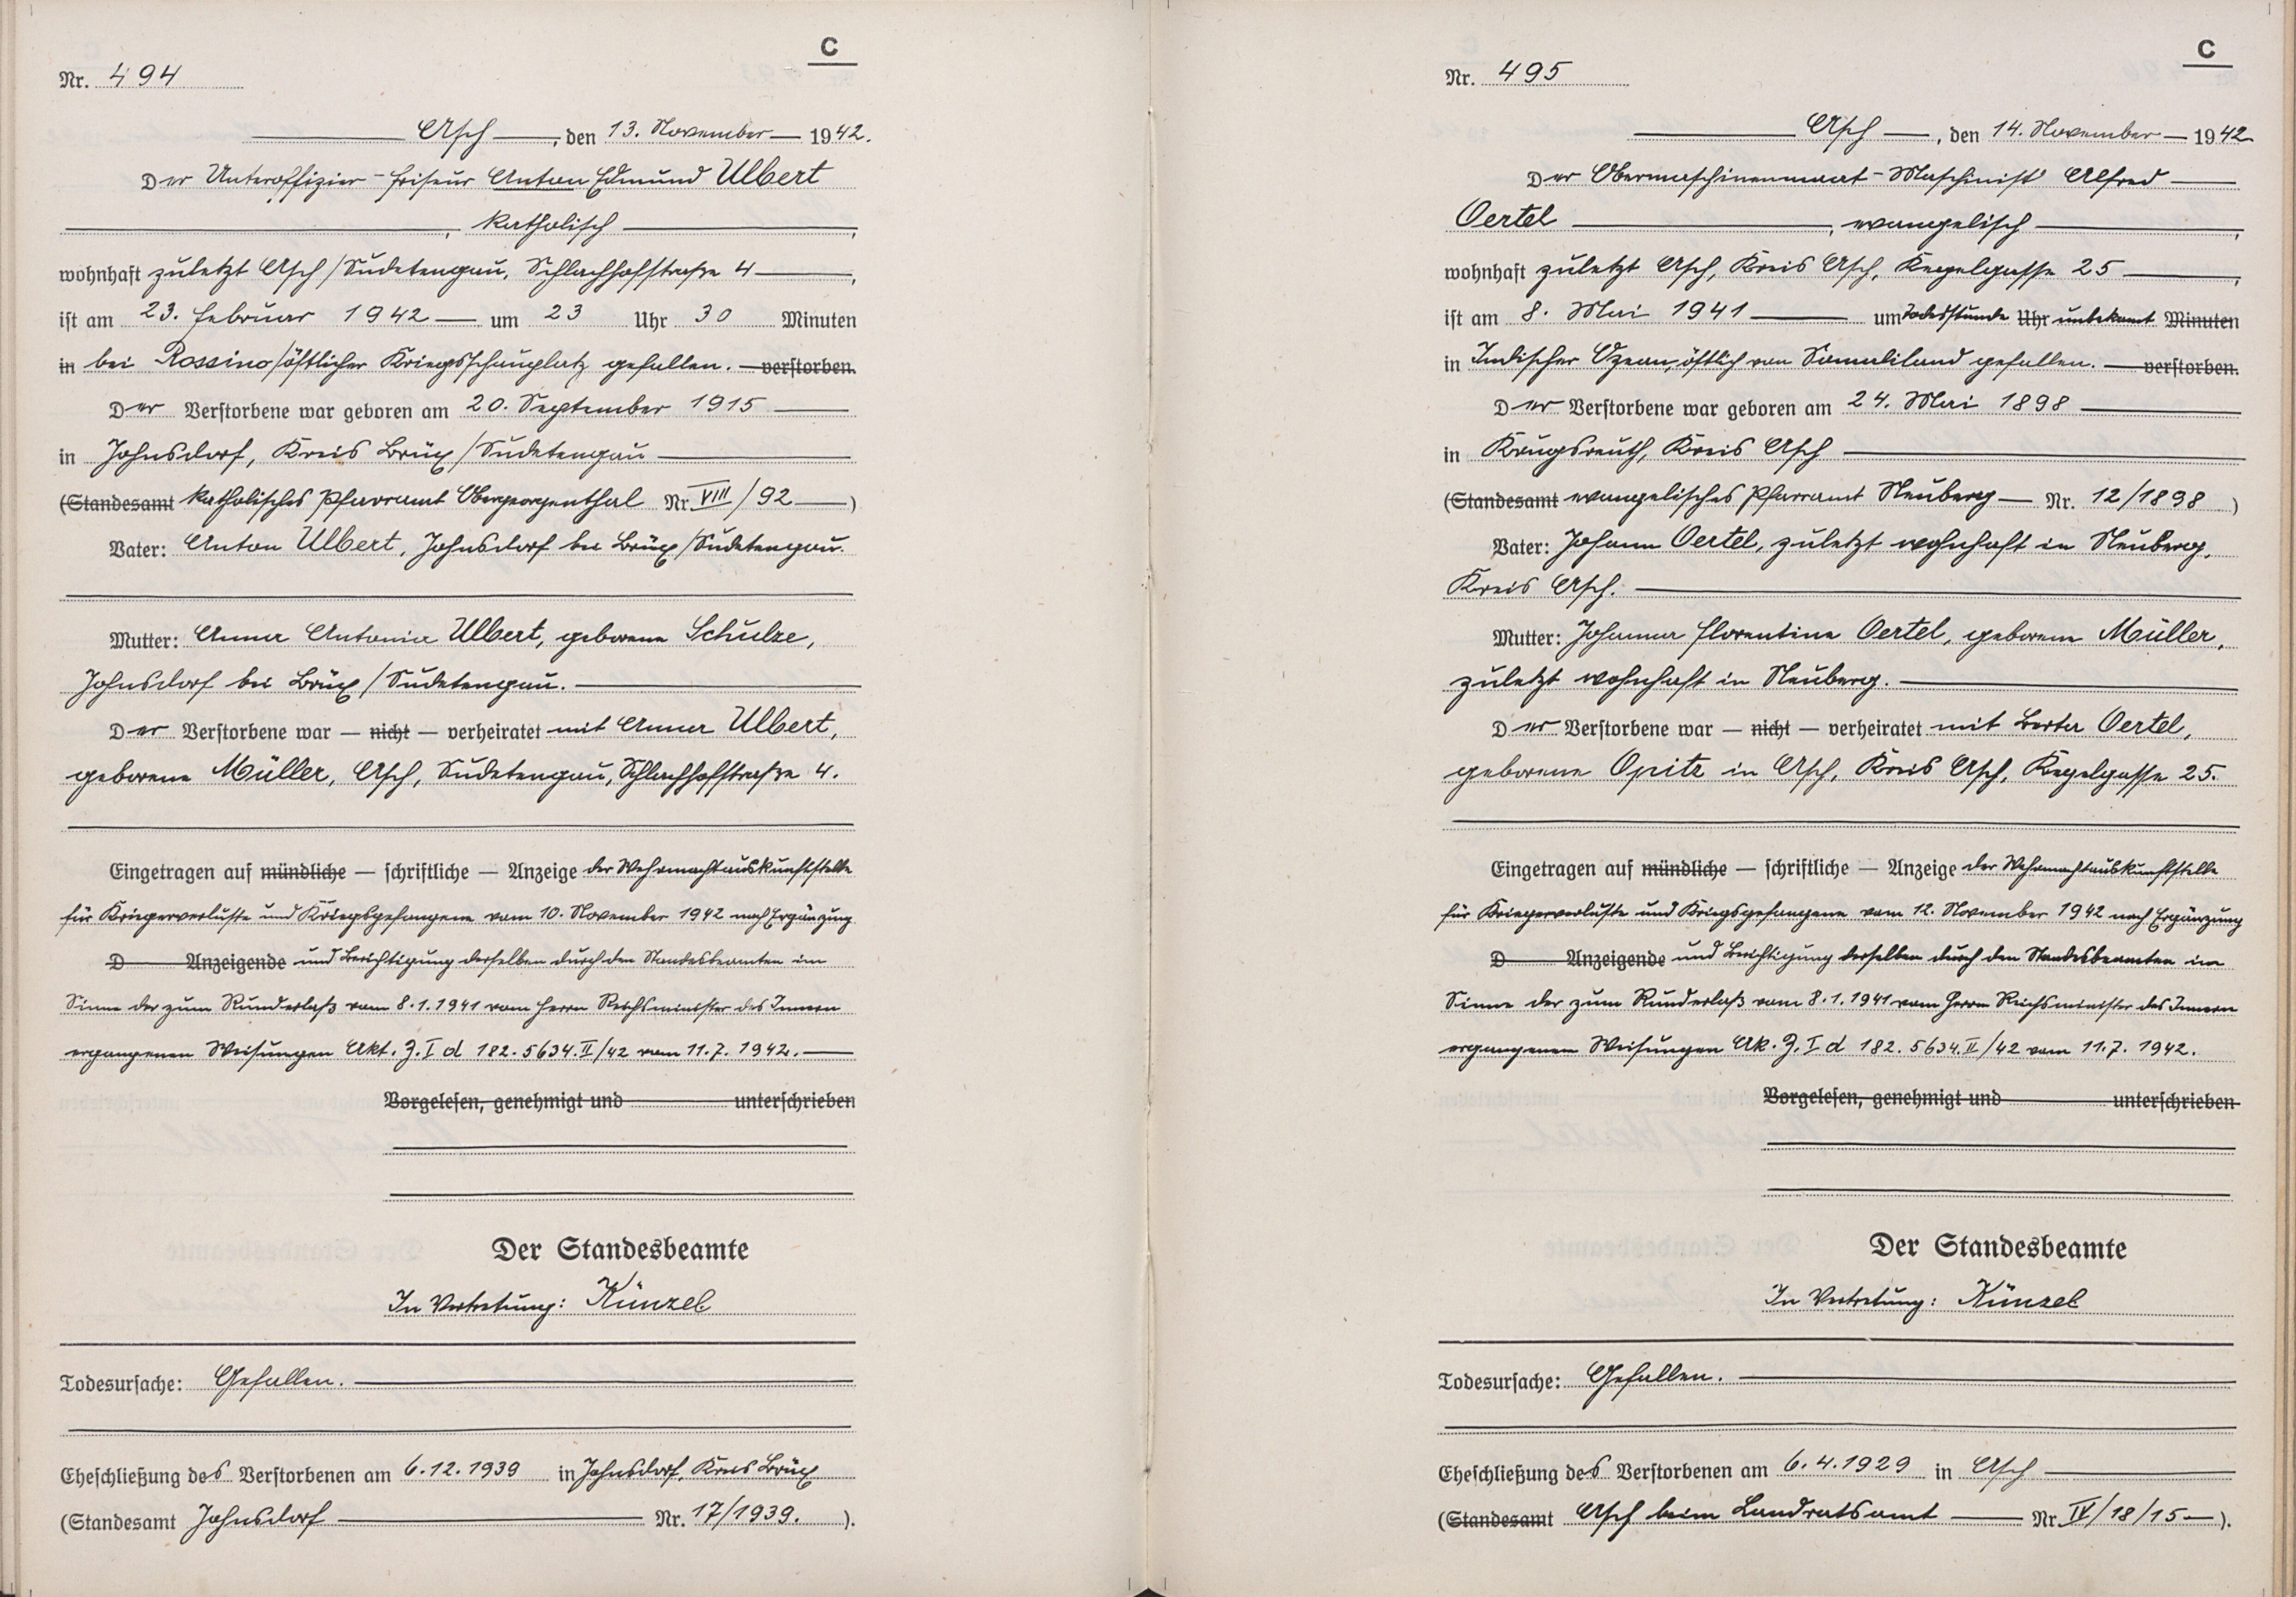 C
Nr. 494
Asch, den 13. November 1942.
Der Unteroffizier - Friseur Anton Edmund Ulbert
, katholisch ,
wohnhaft zuletzt Asch/Sudetengau, Schlachhofstraße 4 ,
ist am 23. Februar 1942 um 23 Uhr 30 Minuten
in bei Rossino/östlicher Kriegsschauplatz gefallen. verstorben.
Der Verstorbene war geboren am 20. September 1915
in Johnsdorf, Kreis Brüx/Sudetengau
(Standesamt katholisches Pfarramt Obergeorgenthal Nr. VIII/92 )
Vater: Anton Ulbert, Johnsdorf bei Brüx/Sudetengau.
Mutter: Anna Antonia Ulbert, geborene Schulze,
Johnsdorf bei Brüx/Sudetengau.
Der Verstorbene war — nicht — verheiratet mit Anna Ulbert,
geborene Müller, Asch, Sudetengau, Schlachhofstraße 4.
Eingetragen auf mündliche — schriftliche — Anzeige der Wehrmachtauskunftstelle
für Kriegerverluste und Kriegsgefangene vom 10. November 1942 nach Ergänzung
D Anzeigende und Berichtigung derselben durch den Standesbeamten im
Sinne der zum Runderlaß vom 8.1.1941 vom Herrn Reichsminister des Innern
ergangenen Weisungen Akt. Z. I d 182.5634.II/42 vom 11.7.1942.
Vorgelesen, genehmigt und unterschrieben
Der Standesbeamte
In Vertretung: Künzel
Todesursache: Gefallen.
Eheschließung des Verstorbenen am 6.12.1939 in Johnsdorf, Kreis Brüx
(Standesamt Johnsdorf Nr. 17/1939. ).
C
Nr. 495
Asch , den 14. November 1942
Der Obermaschinenmaat - Maschinist Alfred
Oertel , evangelisch ,
wohnhaft zuletzt Asch, Kreis Asch, Kegelgasse 25 ,
ist am 8. Mai 1941 um Todesstunde Uhr unbekannt Minuten
in Indischer Ozean, östlich von Somaliland gefallen. verstorben.
Der Verstorbene war geboren am 24. Mai 1898
in Krugsreuth, Kreis Asch
(Standesamt evangelisches Pfarramt Neuberg Nr. 12/1898 )
Vater: Johann Oertel, zuletzt wohnhaft in Neuberg,
Kreis Asch.
Mutter: Johanna Florentine Oertel, geborene Müller,
zuletzt wohnhaft in Neuberg.
Der Verstorbene war — nicht — verheiratet mit Berta Oertel,
geborene Opitz in Asch, Kreis Asch, Kegelgasse 25.
Eingetragen auf mündliche — schriftliche — Anzeige der Wehrmachtauskunftstelle
für Kriegerverluste und Kriegsgefangene vom 12. November 1942 nach Ergänzung
D Anzeigende und Berichtigung derselben durch den Standesbeamten im
Sinne der zum Runderlaß vom 8.1.1941 vom Herrn Reichsminister des Innern
ergangenen Weisungen Ak. Z. I d 182.5634.II/42 vom 11.7.1942.
Vorgelesen, genehmigt und unterschrieben
Der Standesbeamte
In Vertretung: Künzel
Todesursache: Gefallen.
Eheschließung des Verstorbenen am 6.4.1929 in Asch
(Standesamt Asch beim Landratsamt Nr. IV/18/15 ).